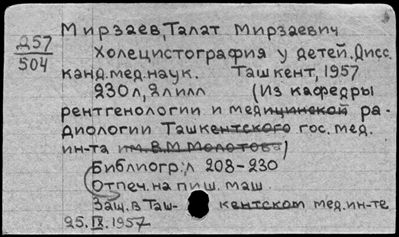 Мирзаев, Талат Мирзаевич
257
504
Холецистография у детей. Дисс.
канд. мед. наук. Ташкент, 1957
230 л, 2 л илл (Из кафедры
рентгенологии и медицинской ра-
диологии Ташкентского гос. мед.
ин-та им. В.М Молотова)
Библиогр: л 208-230
Отпеч. на пиш. маш.
Защ. в Таш- кентском мед. ин-те
25.IX.1957